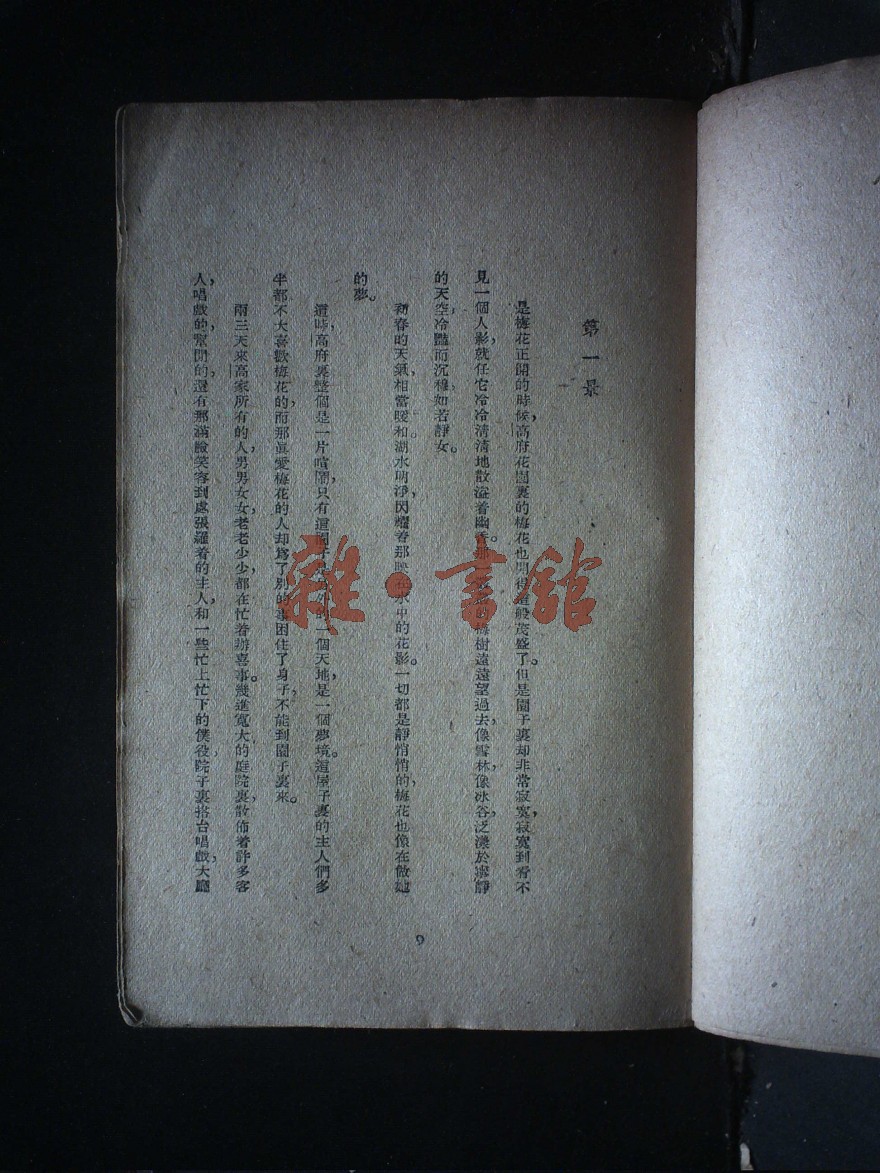 第一景
是梅花正開的時候，高府花園裏的梅花也開得這般茂盛了。但是園子裏却非常寂寞，寂寞到看不
見一個人影，就任它冷冷淸淸地散溢着幽香。那 的梅樹遠遠望過去，像雪林，像冰谷，泛濫於寧靜
的天空，冷豔而沉穆，如若靜女。
初春的天氣，相當暖和。湖水明淨，閃耀着那映在水中的花影。一切都是靜悄悄的，梅花也像在做她
的夢。
這時，高府裏整個是一片喧鬧，只有這園子是 的一個天地，是一個夢境。這屋子裏的主人們多
半都不大喜歡梅花的，而那眞愛梅花的人却爲了別的事困住了身子，不能到園子裏來。
兩三天來，高家所有的人，男男女女，老老少少，都在忙着辦喜事。幾進寬大的庭院裏，散佈着許多客
人，唱戲的，幫閒的，還有那滿臉笑容到處張羅着的主人，和一些忙上忙下的僕役。院子裏搭台唱戲，大廳
9
雜·書舘